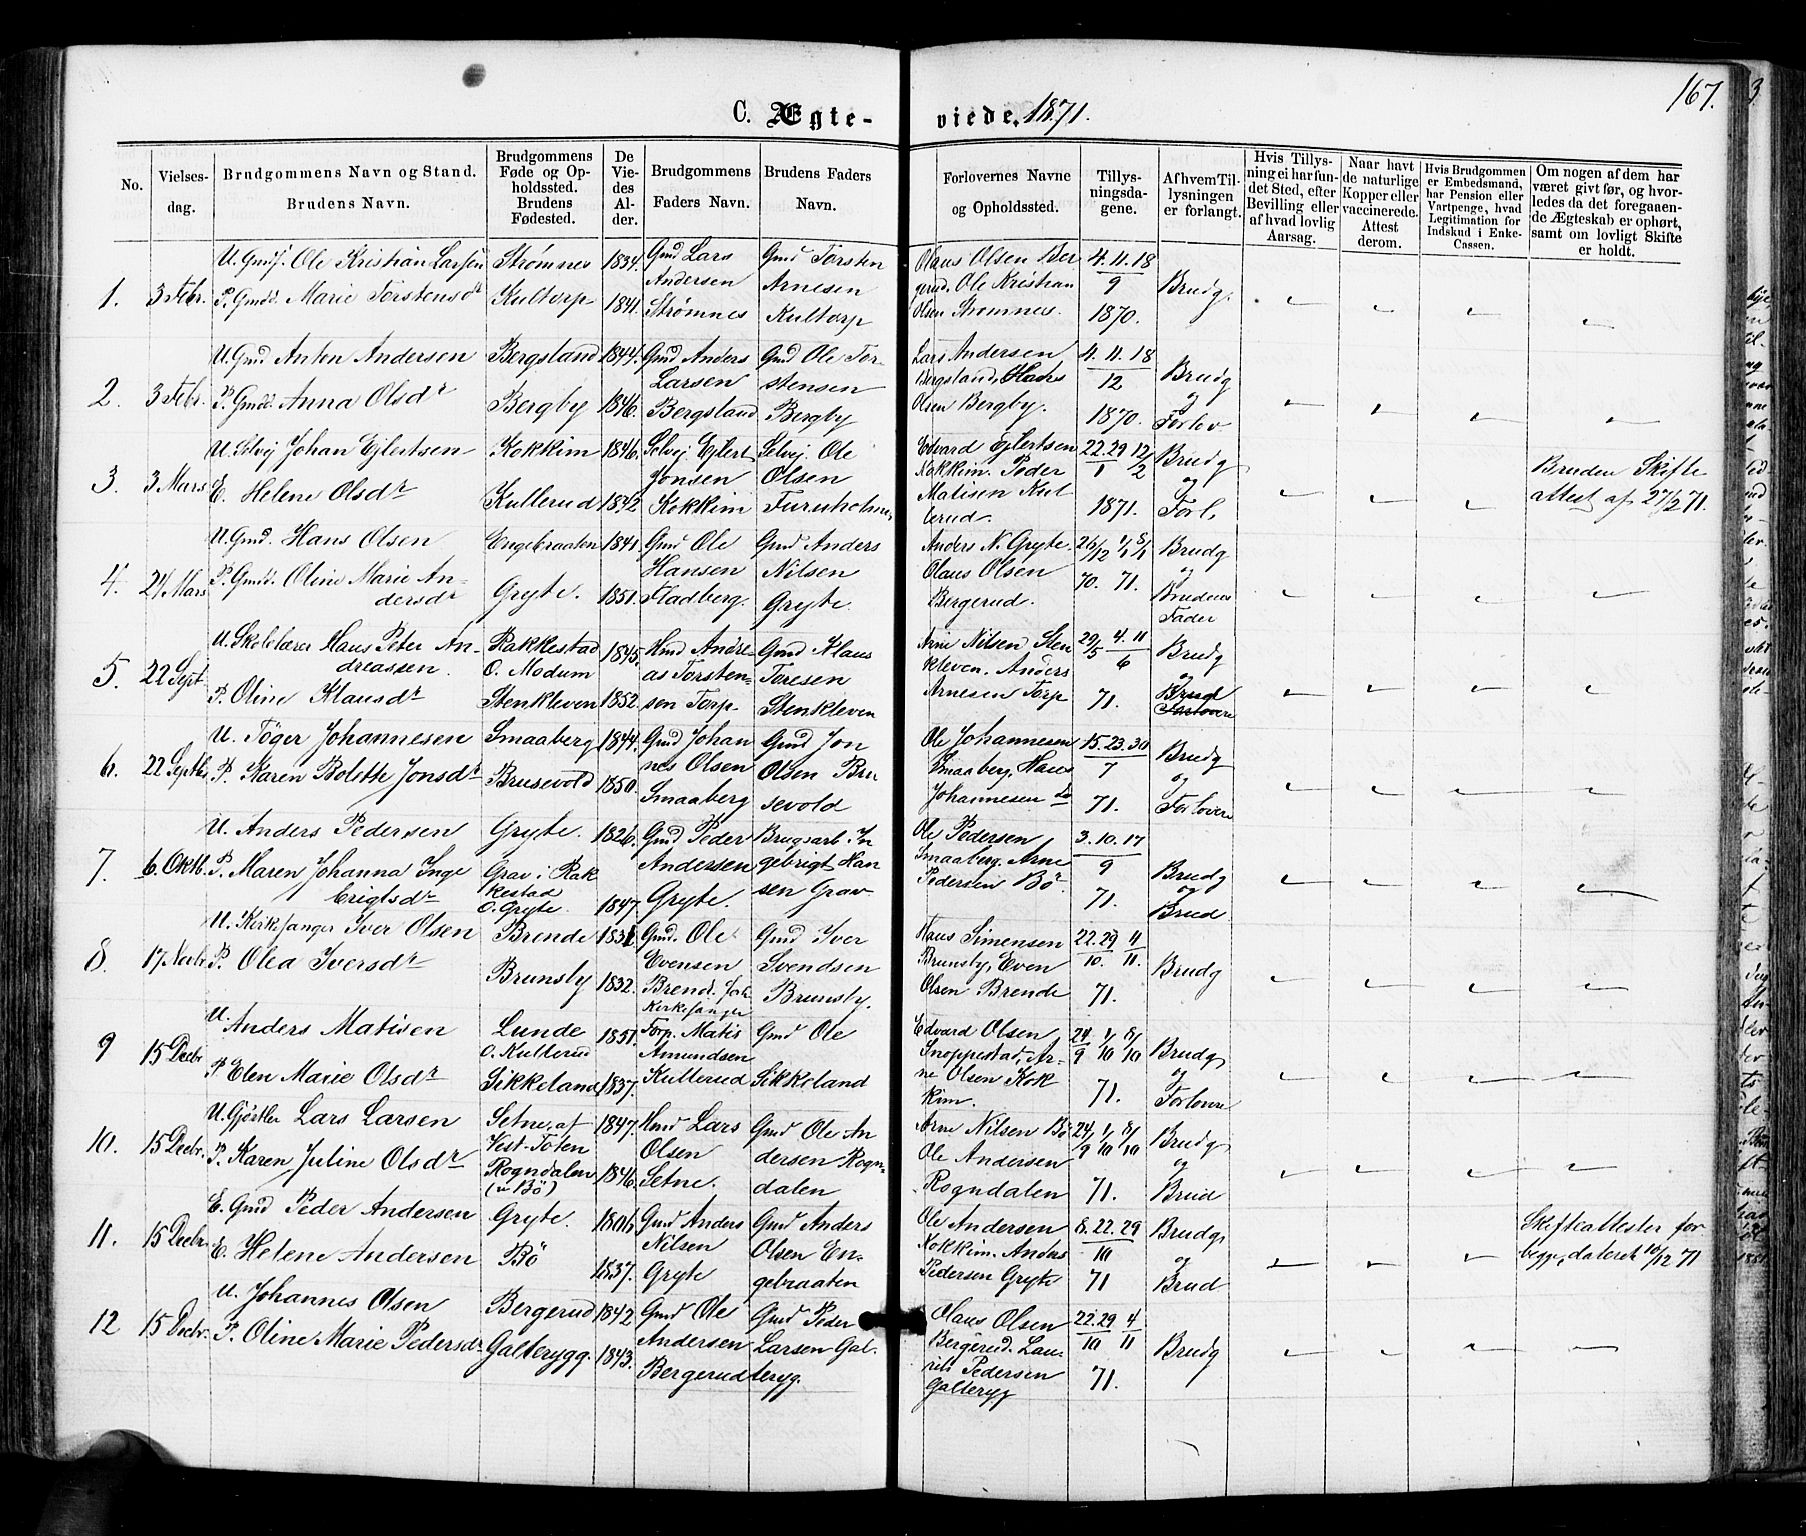 167.
C. Ægte-viede. 1871.
No.
Vielses-
dag.
Brudgommens Navn og Stand.
Brudens Navn.
Brudgommens
Føde og Op-
holdssted.
Brudens
Fødested.
De
Vie-
des
Al-
der.
Brudgommens
Faders Navn.
Brudens Faders
Navn.
Forlovernes Navne
og Opholdssted.
Tillys-
ningsda-
gene.
Af hvem Til-
lysningen
er forlangt.
Hvis Tillys-
ning ei har fun-
det Sted, efter
Bevilling eller
af hvad lovlig
Aarsag.
Naar havt
de naturlige
Kopper eller
vaccinerede.
Attest
derom.
Hvis Brudgommen
er Embedsmand,
har Pension eller
Vartpenge, hvad
Legitimation for
Indskud i Enke-
Cassen.
Om nogen af dem har
været givt før, og hvor-
ledes da det foregaaen-
de Ægteskab er ophørt,
samt om lovligt Skifte
er holdt.
1. 3 Febr.
U. Gmds. Ole Kristian Larsen
P. Gmdd. Marie Torstensdr
Strømnes
Kultorp
1834.
1841.
Gmd Lars
Andersen
Strømnes
Gmd Torsten
Arnesen
Kultorp
Olaus Olsen Ber
gerud, Ole Kristian
Olsen Strømnes.
4. 11. 18
9
1870.
Brudg.
2. 3 Febr.
U. Gmd Anten Andersen
P. Gmdd. Anna Olsdr
Bergsland
Bergby
1844.
1846.
Gmd Anders
Larsen
Bergsland
Gmd Ole Tor-
stensen
Bergby
Lars Andersen
Bergsland, Hans
Olsen Bergby.
4. 11. 18
12
1870.
Brudg
og
Forlov
3. 3 Mars
U. Selvej Johan Ejlertsen
E. Helene Olsdr
Kokkim
Kullerud
1846.
1842
Selvej Ejlert
Jonsen
Kokkim
Selvej. Ole
Olsen
Furuholm
Edvard Ejlertsen
Kokkim. Peder
Matisen Kul
lerud.
22. 29 12/2
1
1871.
Brudg
og
Forl.
Bruden Skifte
attest af 27/2 71.
4. 24 Mars
U. Gmd. Hans Olsen
P. Gmdd. Oline Marie An-
dersdr
Engebraaten
Gryte.
1841.
1851.
Gmd Ole
Hansen
Fladberg.
Gmd Anders
Nilsen
Gryte.
Anders N. Gryte.
Olaus Olsen
Bergerud.
26/12 1/1 8/1
70. 71.
Brudg
og
Brudens
Fader
5. 22 Sept
U. Skolelærer Hans Peter An-
dreassen.
P. Oline Klausdr
Rakkestad
O. Modum
Stenkleven
1845.
1852.
Hmd Andre-
as Torsten-
sen Torp
Gmd Klaus
Toresen
Stenkleven
Arne Nilsen Sten
kleven. Anders
Arnesen Torp
29/5 4. 11
6
71.
Brudg
og
Brud
Forlovere
6. 22 Septbr
U. Töger Johannesen
P. Karen Bolette Jonsdr
Smaaberg
Brusevold
1844.
1850.
Gmd Johan
nes Olsen
Smaaberg
Gmd Jon
Olsen Bru
sevold
Ole Johannesen
Smaaberg, Hans
Johannesen do
15. 23. 30
7
71.
Brudg
og
Forlovere
7. 6. Oktb.
U. Anders Pedersen
P. Maren Johanna Inge
brigtsdr
Gryte.
Grav i Rak
kestad
O. Gryte.
1826.
1847.
Gmd Peder
Andersen
Gryte.
Brugsarb. In
gebrigt Han
sen Grav
Ole Pedersen
Smaaberg. Arne
Pedersen Bö.
3. 10. 17
9
71.
Brudg
og
Brud
8. 17 Novbr.
U. Kirkesanger Iver Olsen
P. Olea Iversdr
Brende
Brunsby
1832.
Gmd. Ole
Evensen
Brend.
Kirkesanger
Gmd Iver
Svendsen
Brunsby.
Hans Simensen
Brunsby, Even
Olsen Brende
22. 29 4
10. 11.
71.
Brudg
9 15 Decbr
U. Anders Matisen
P. Elen Marie Olsdr
Lunde
O. Kullerud
Sikkeland
1851.
1837.
Torp. Matis
Amundsen
Kullerud
Gmd Ole
Sikkeland
Edvard Olsen
Snoppestad, Ar-
ne Olsen Kok
kim.
24/9 1/10 8/10
71.
Brudg
og
Forlovere
10. 15 Decbr.
U. Gjørtler Lars Larsen
P. Karen Juline Olsdr
Setne, af
Vest-Toten
Rogndalen
(u Bö)
1847.
1846.
Hmd Lars
Olsen
Setne.
Gmd Ole An
dersen Rogn-
dalen
Arne Nilsen Bö
Ole Andersen
Rogndalen
24/9 1/10 8/10
71.
Brudg
og
Brud
11. 15 Decbr.
E. Gmd Peder Andersen
E. Helene Andersen
Gryte.
Bö
1806
1837.
Gmd Anders
Nilsen
Gryte
Gmd Anders
Olsen En-
gebraaten
Ole Andersen
Kokkim. Anders
Pedersen Gryte
8. 22. 29
10
71
Brudg
og
Brud
Skifteattester for
begge, dateret 10/12 71
12 15 Decbr.
U. Johannes Olsen
P. Oline Marie Pedersdr
Bergerud
Galterygg.
1842
1843.
Gmd Ole
Andersen
Bergerud
Gmd Peder
Larsen Gal-
teryg.
Olaus Olsen
Bergerud. Lau-
rits Pedersen
Galteryg
22. 29 4
10 11
71.
Brudg